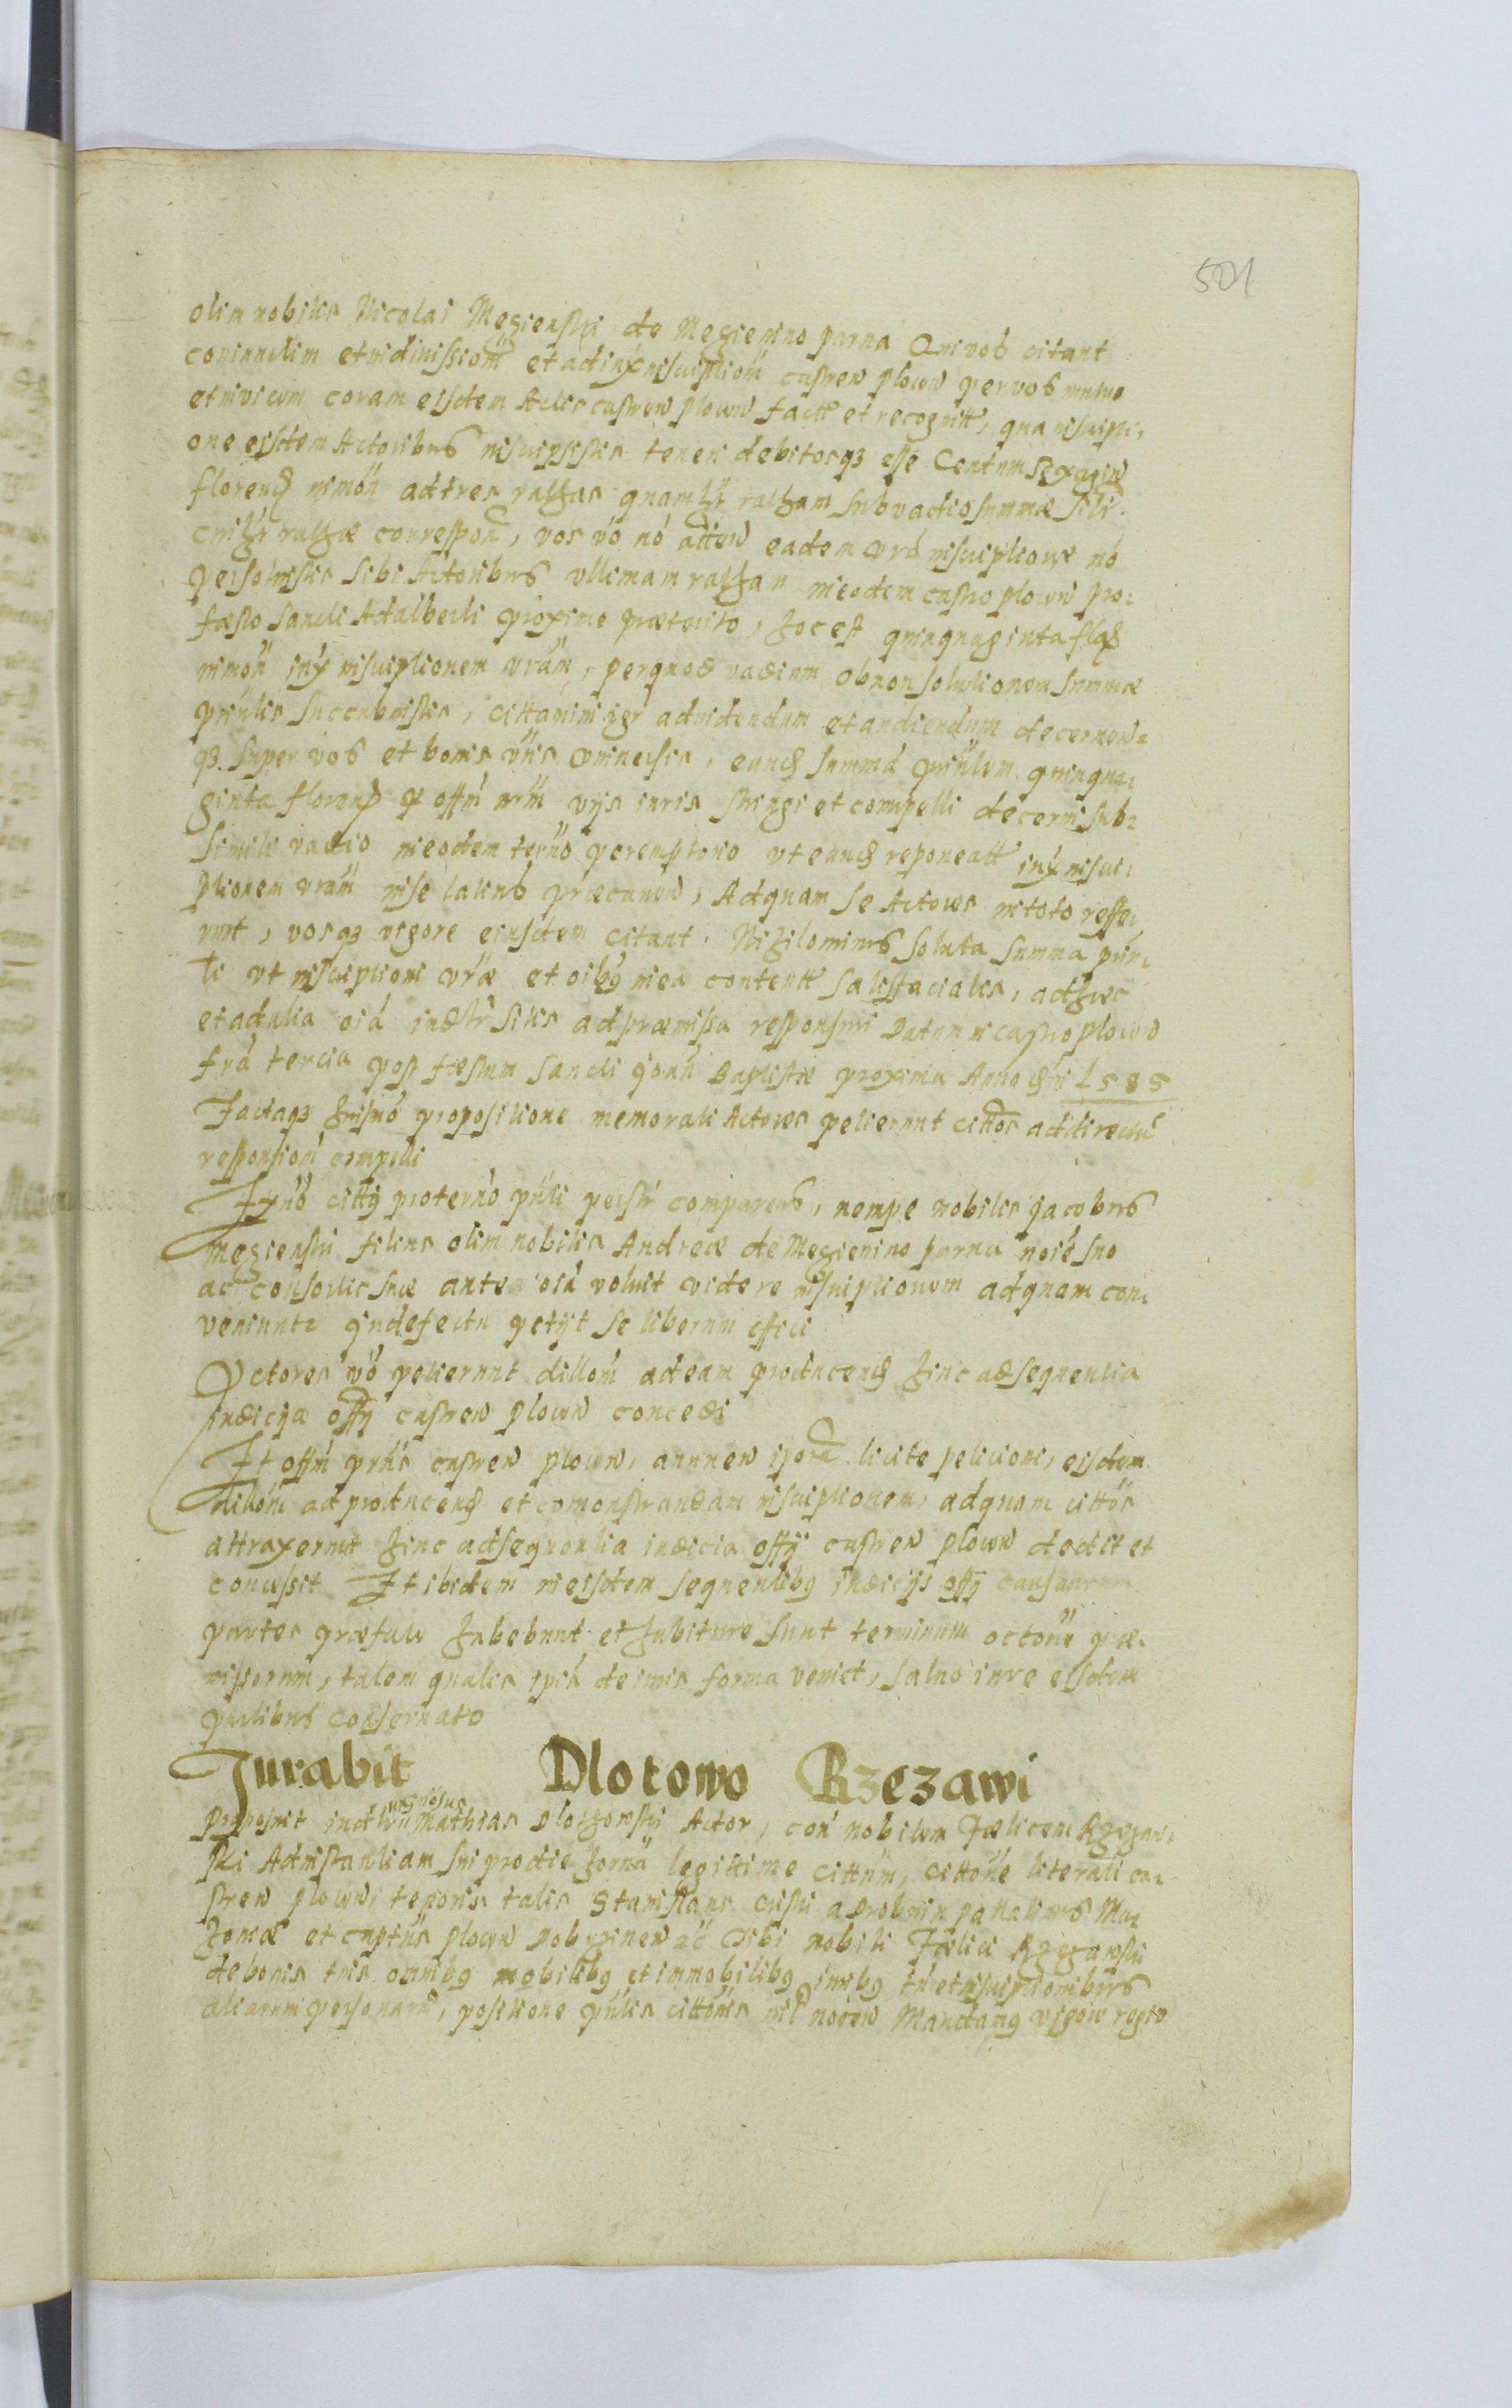 501
olim nobilis Nicolai Megienski de Megienino parva Qui vos citant
coniunctim et indivissiom et ad inscriptiom castren plocen per vos mutuo
et in vicem coram eisdem Actis castren plocen factt et recognitt, qua inscripti,
one eisdem Actoribus inscripsistis teneri debitosqз esse Centum sexagin
florenos in mon ad tres rathas quamlt ratham sub vadio summæ sibi
cuilt rathæ correspon, vos vo no atten eadem vra inscriptione no
persolvistis sibi Actoribus ultimam ratham in eodem castro plocen pro
fæsto Sancti Adalberti proxime præterito, hoc est quinquaginta flor
in mon inx inscriptionem vram, per quod vadium ob non solutionem summæ
prinlis succubuistis, cittamini igr ad videndum et audiendum decernen
qз super vos et bonis vris universis, eand summa prinlem quinqua,
ginta floren p offm nrm vijs iuris stringi et compelli decerni sub
simili vadio in eodem terno peremptorio ut eand reponeatt inx inscri,
ptionem vram in se latius præcanen, Ad quam se Actores in toto refe,
runt, vosqз vigore eiusdem citant. Nihilominus soluta summa prin,
li ut inscriptioni vræ et oibз in ea contentt satisfaciatis, ad hæc
et ad alia oia iudlr sitis ad præmissa responsuri Datum in castro plocen
fra tercia post fæstum Sancti Joan Baptistæ proxima Anno dni 1585
Factaqз huismo propositione memorati Actores petierunt cittos ad directa
responsiom compelli
Ex no citty pro terno pnti perslr comparens, nempe nobilis Jacobus
Megienski filius olim nobilis Andreæ de Megienino parva noie suo
ac consortis suæ ante oia voluit videre inscriptionem ad quam con,
veniunt qn defectu petijt se liberum effici
Actores vo petierunt dillom ad eam producend hinc ad sequentia
iudicia offij castren plocen concedi
Et offm prns castren plocen, annuen ipora licite peticioni, eisdem
dillom ad producend et comonstrandam inscriptionem, ad quam cittos
attraxerunt hinc ad sequentia iudicia offij castren plocen dedit et
concessit Et ibidem in eisdem sequentibз iudicijs offij causarum
partes præfate habebunt et habiture sunt terminum octone præ,
missorum, talem qualis ipis de iuris forma veniet, salvo iure eisdem
partibus conservato
Jurabit Dlotowo Rzezawi
gnosus
Proposuit iudlr Mathias Dlothowski Actor, con nobilem Fælicem Rzezaw,
ski Ad instantiam sui pro die horna legittime cittum, cittone literali ca,
stren plocen, tenoris talis Stanislaus Criski a Drobnin pallatinus Ma,
zoviæ et captus plocen Dobrzinen zc Tibi nobili Fælici Rzezawski
de bonis tuis omnibз mobilibз et immobilibз iuribз tn et inscriptionibus
aliarum personarum, positione pntis cittonis nil nocen Mandamз vigore regio